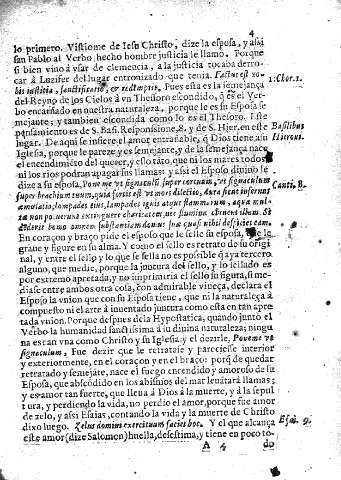 4
lo primero. Vistiome de Iesu Christo, dize la esposa, y assi
san Pablo al Verbo hecho hombre justicia le llamó. Porque
si bien vino à vsar de clemencia, a la justicia tocaba derro-
car à Luzifer del lugar entronizado que tenia. Factus est no-
bis iustitia, sanctificatio, & redemptio. Pues esta es la semejança
1. Chor. 1.
del Reyno de los Cielos à vn Thesoro escondido, q̃ es el Ver-
bo encarnado en nuestra naturaleza, porque le es su Esposa se
mejante; y tambien escondida como lo es el Thesoro. Este
pensamiento es de S. Bas. Responsione, 8. y de S. Hjer. en este
Basilius
lugar. De aqui se infiere el amor entrañable, q̃ Dios tiene a su
Hieroni.
Iglesia, porque le parece y es semejante, y de la semejança nace
el encendimiẽto del querer, y esto tãto, que ni los mares todos
ni los rios podran apagar sus llamas: y assi el Esposo diuino le
dize a su esposa, Pone me vt signaculũ super cor tuum, vt signaculum
Canti. 8.
super brachium tuum, quia fortis est vt mors dilectio, dura sicut infernus
æmulatio, lampades eius, lampades ignis atque flammarum, aquæ mul-
ta non potuerunt extinguere charitatem nec flumina obruent illam. Si
dederit homo omnem substantiam domus suæ quasi nihil despiciet eam.
En coraçon y braço pide el esposo que le selle su esposa, que lo
graue y figure en su alma. Y como el sello es retrato de su origi
nal, y entre el sello y lo que se sella no es possible q̃ aya tercero
alguno, que medie, porque la juntura del sello, y lo sellado es
por extremo apretada, y no imprimiria el sello su figura, si me-
diasse entre ambos otra cosa, con admirable viueça, declara el
Esposo la vnion que con su Esposa tiene, que ni la naturaleza à
compuesto ni el arte à inuentado juntura como esta en tan apre
tada vnion. Porque despues de la Hypostatica, quando juntò el
Verbo la humanidad sanctissima à su diuina naturaleza; ningu
na es tan vna como Christo y su Iglesia, y el dezirle, Pone me vt
signaculum. Fue dezir que le retratasse y pareciesse interior
y exteriormente, en el coraçon y en el braço: porq̃ de quedar
retratado y semejãte, nace el fuego encendido y amoroso de su
Esposa, que abscõdido en los abismos del mar leuãtarà llamas;
y es amor tan fuerte, que lleua à Dios à la muerte, y à la sepul
tura, y perdiendo la vida, no perdio el amor, porque fue amor
de zelo, y assi Esaias, contando la vida y la muerte de Christo
dixo luego. Zelus domini exercituum faciet hoc. Y el que alcança
Esai. 9.
este amor (dize Salomon) huella, desestima, y tiene en poco to-
A 4
do